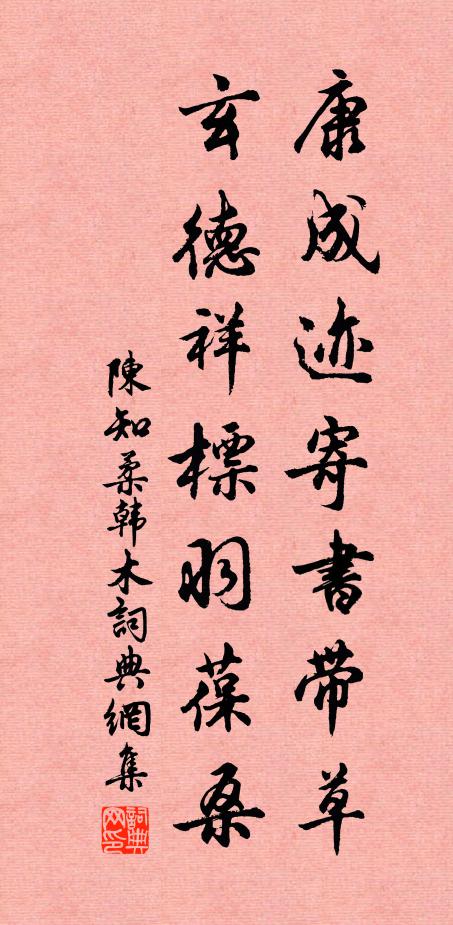 康成迹寄書帶草
玄德祥標羽葆桑
陳知柔韓木詞典網集
詞典网印